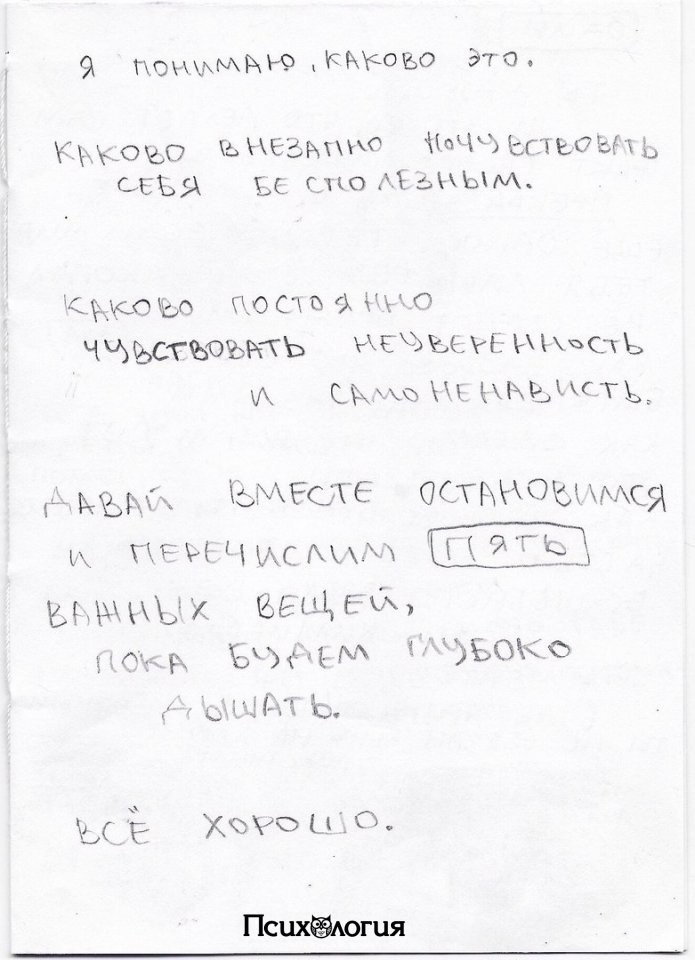 Я ПОНИМАЮ, КАКОВО ЭТО.
КАКОВО ВНЕЗАПНО ПОЧУВСТВОВАТЬ
СЕБЯ БЕСПОЛЕЗНЫМ.
КАКОВО ПОСТОЯННО
ЧУВСТВОВАТЬ НЕУВЕРЕННОСТЬ
И САМОНЕНАВИСТЬ.
ДАВАЙ ВМЕСТЕ ОСТАНОВИМСЯ
И ПЕРЕЧИСЛИМ ПЯТЬ
ВАЖНЫХ ВЕЩЕЙ,
ПОКА БУДЕМ ГЛУБОКО
ДЫШАТЬ.
ВСЁ ХОРОШО.
Психология